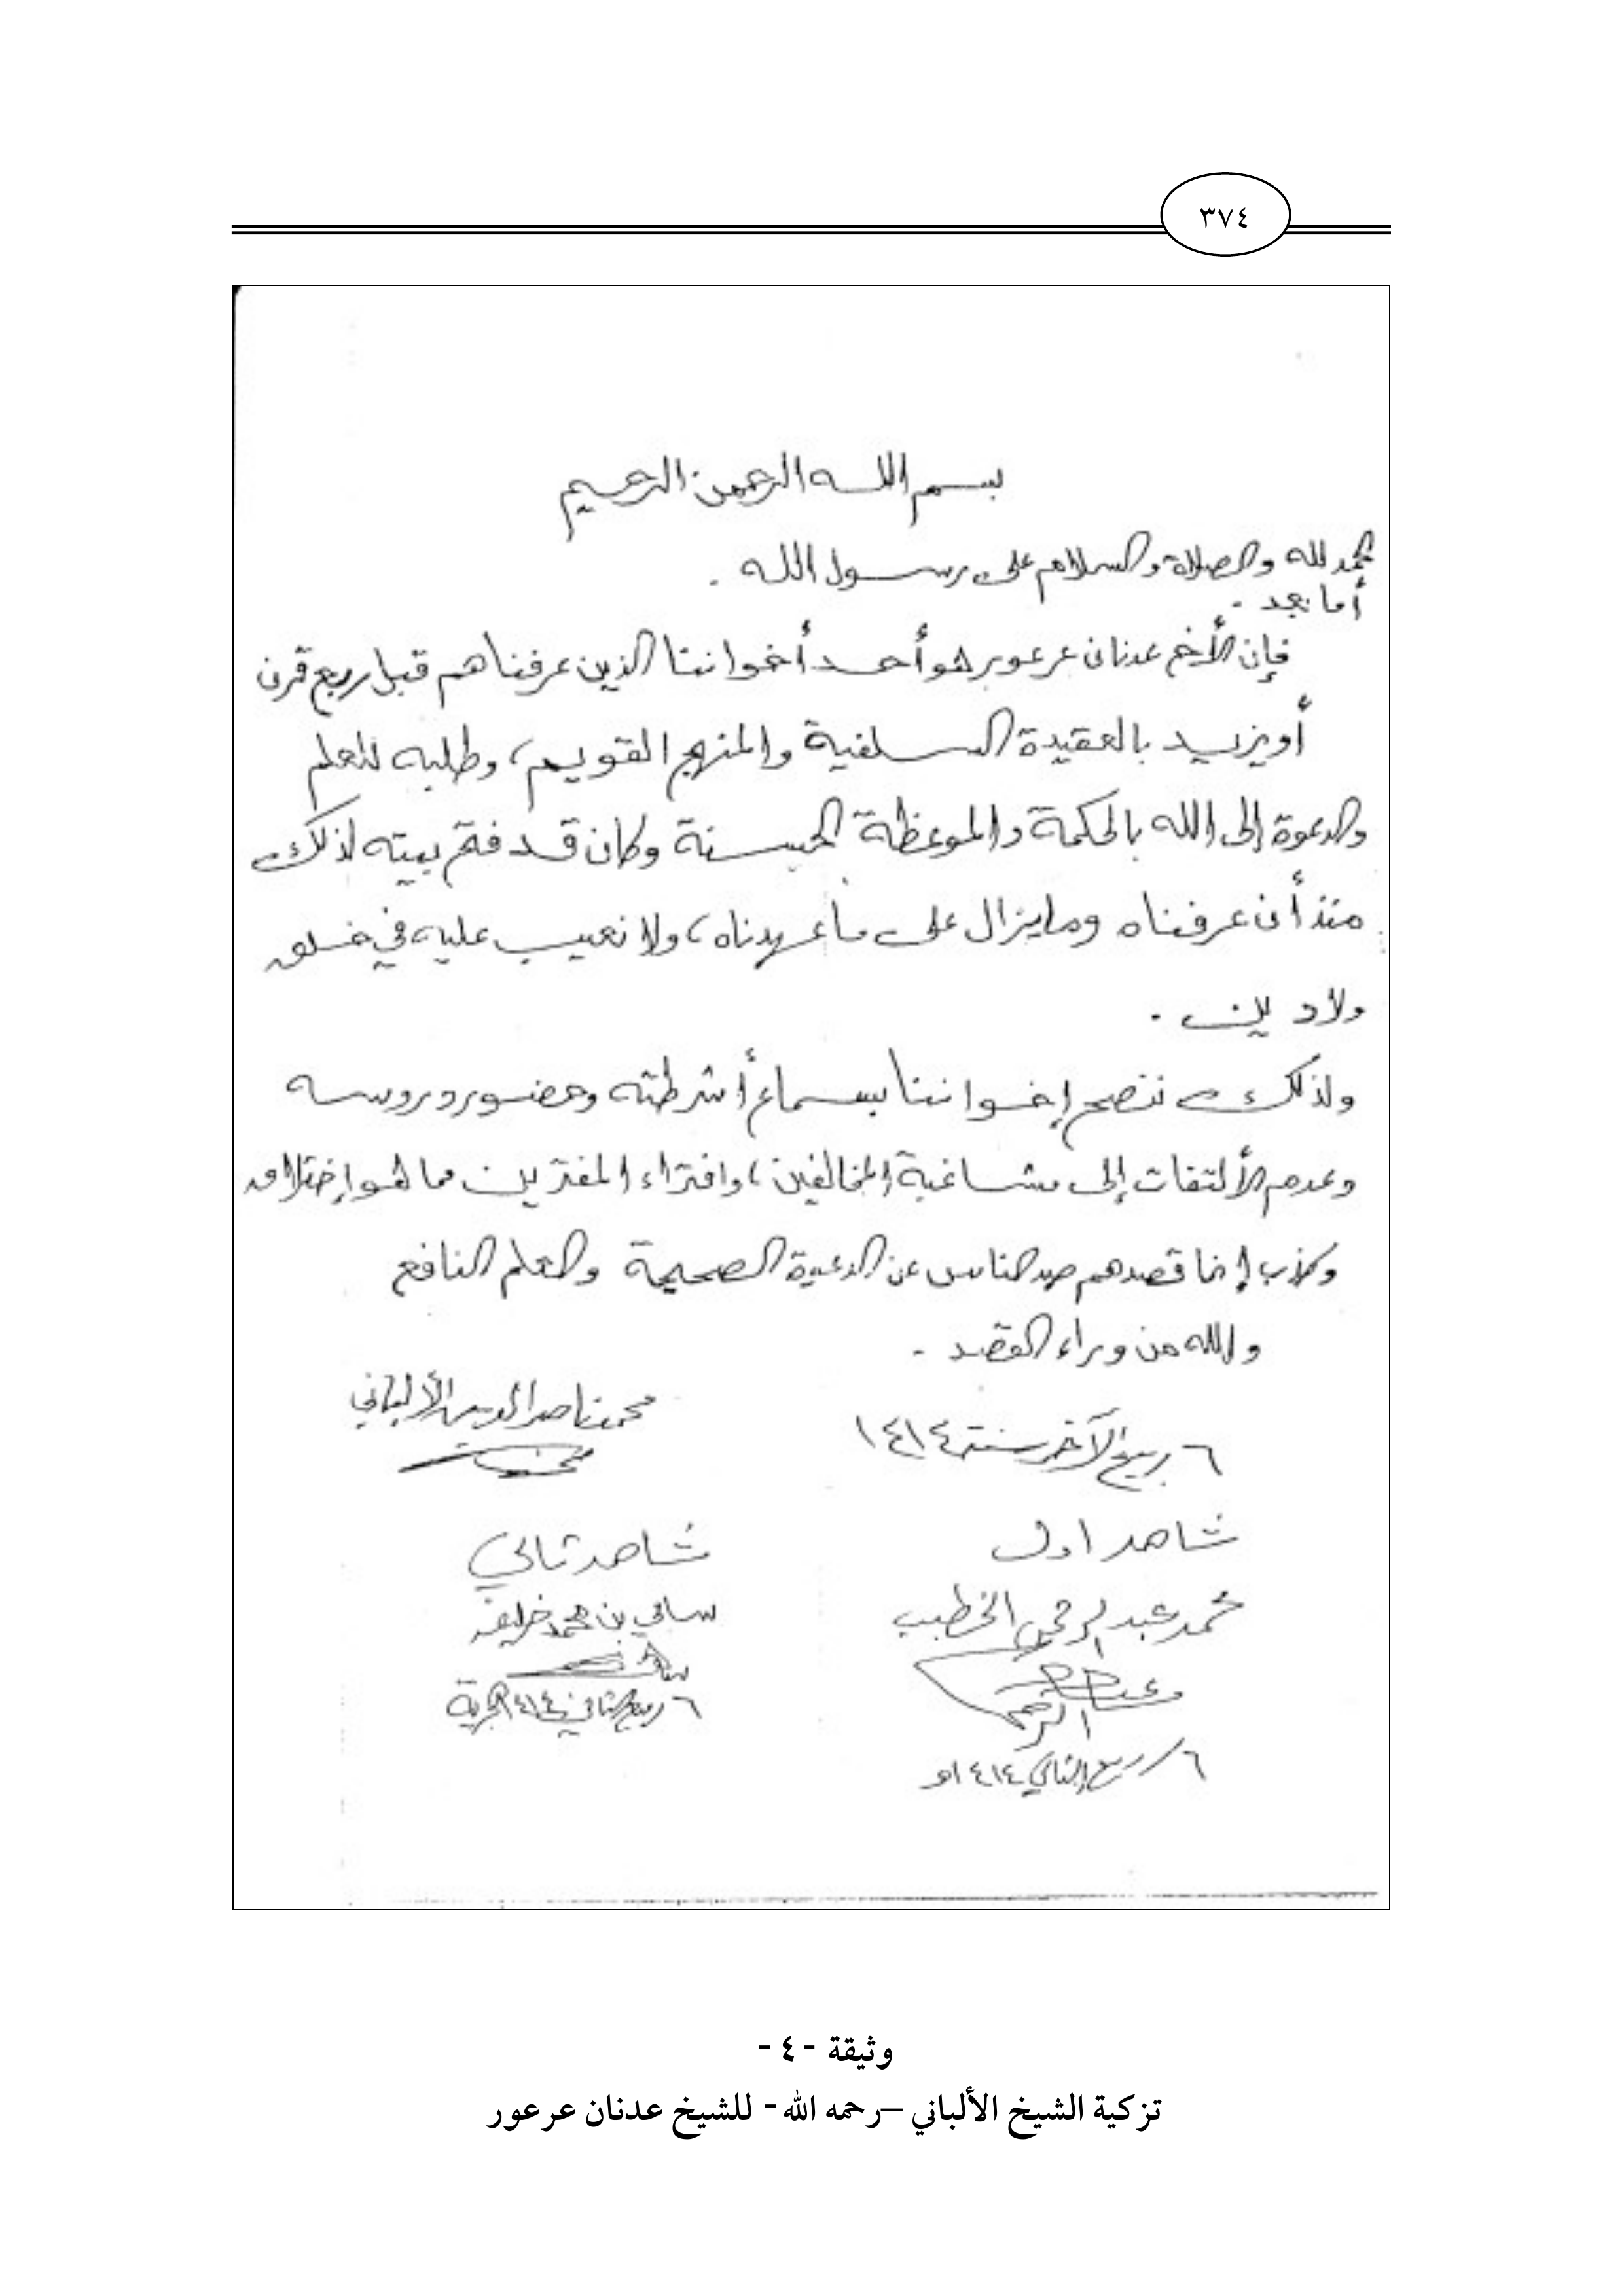 ٣٧٤
بسم الله الرحمن الرحيم
الحمد لله والصلاة والسلام على رسول الله .
أما بعد -
فإن الأخ عدنان عرعور هو أحد أخواننا الذين عرفناهم قبل ربع قرن
أو يزيد بالعقيدة السلفية والمنهج القويم، وطلبه للعلم
والدعوة إلى الله بالحكمة والموعظة الحسنة وكان قد فتح بيته لذلك
منذ أن عرفناه وما يزال على ما عهدناه، ولا نعيب عليه في خلق
ولا دين .
ولذلك ننصح إخواننا بسماع أشرطته وحضور دروسه
وعدم الألتفات إلى مشاغبة المخالفين، وافتراء المفترين مما هو إختلاق
وكذب إنما قصدهم صد الناس عن الدعوة الصحيحة والعلم النافع
والله من وراء القصد -
محمد ناصر الدين الألباني
٦ ربيع الآخر سنة ١٤١٤
شاهد اول
شاهد ثاني
محمد عبد الرحمن الخطيب
سامي بن محمد خليفة
٦ ربيع الثاني ١٤١٤ هجرية
٦/ ربيع الثاني ١٤١٤هـ
وثيقة - ٤ -
تزكية الشيخ الألباني –رحمه الله- للشيخ عدنان عرعور